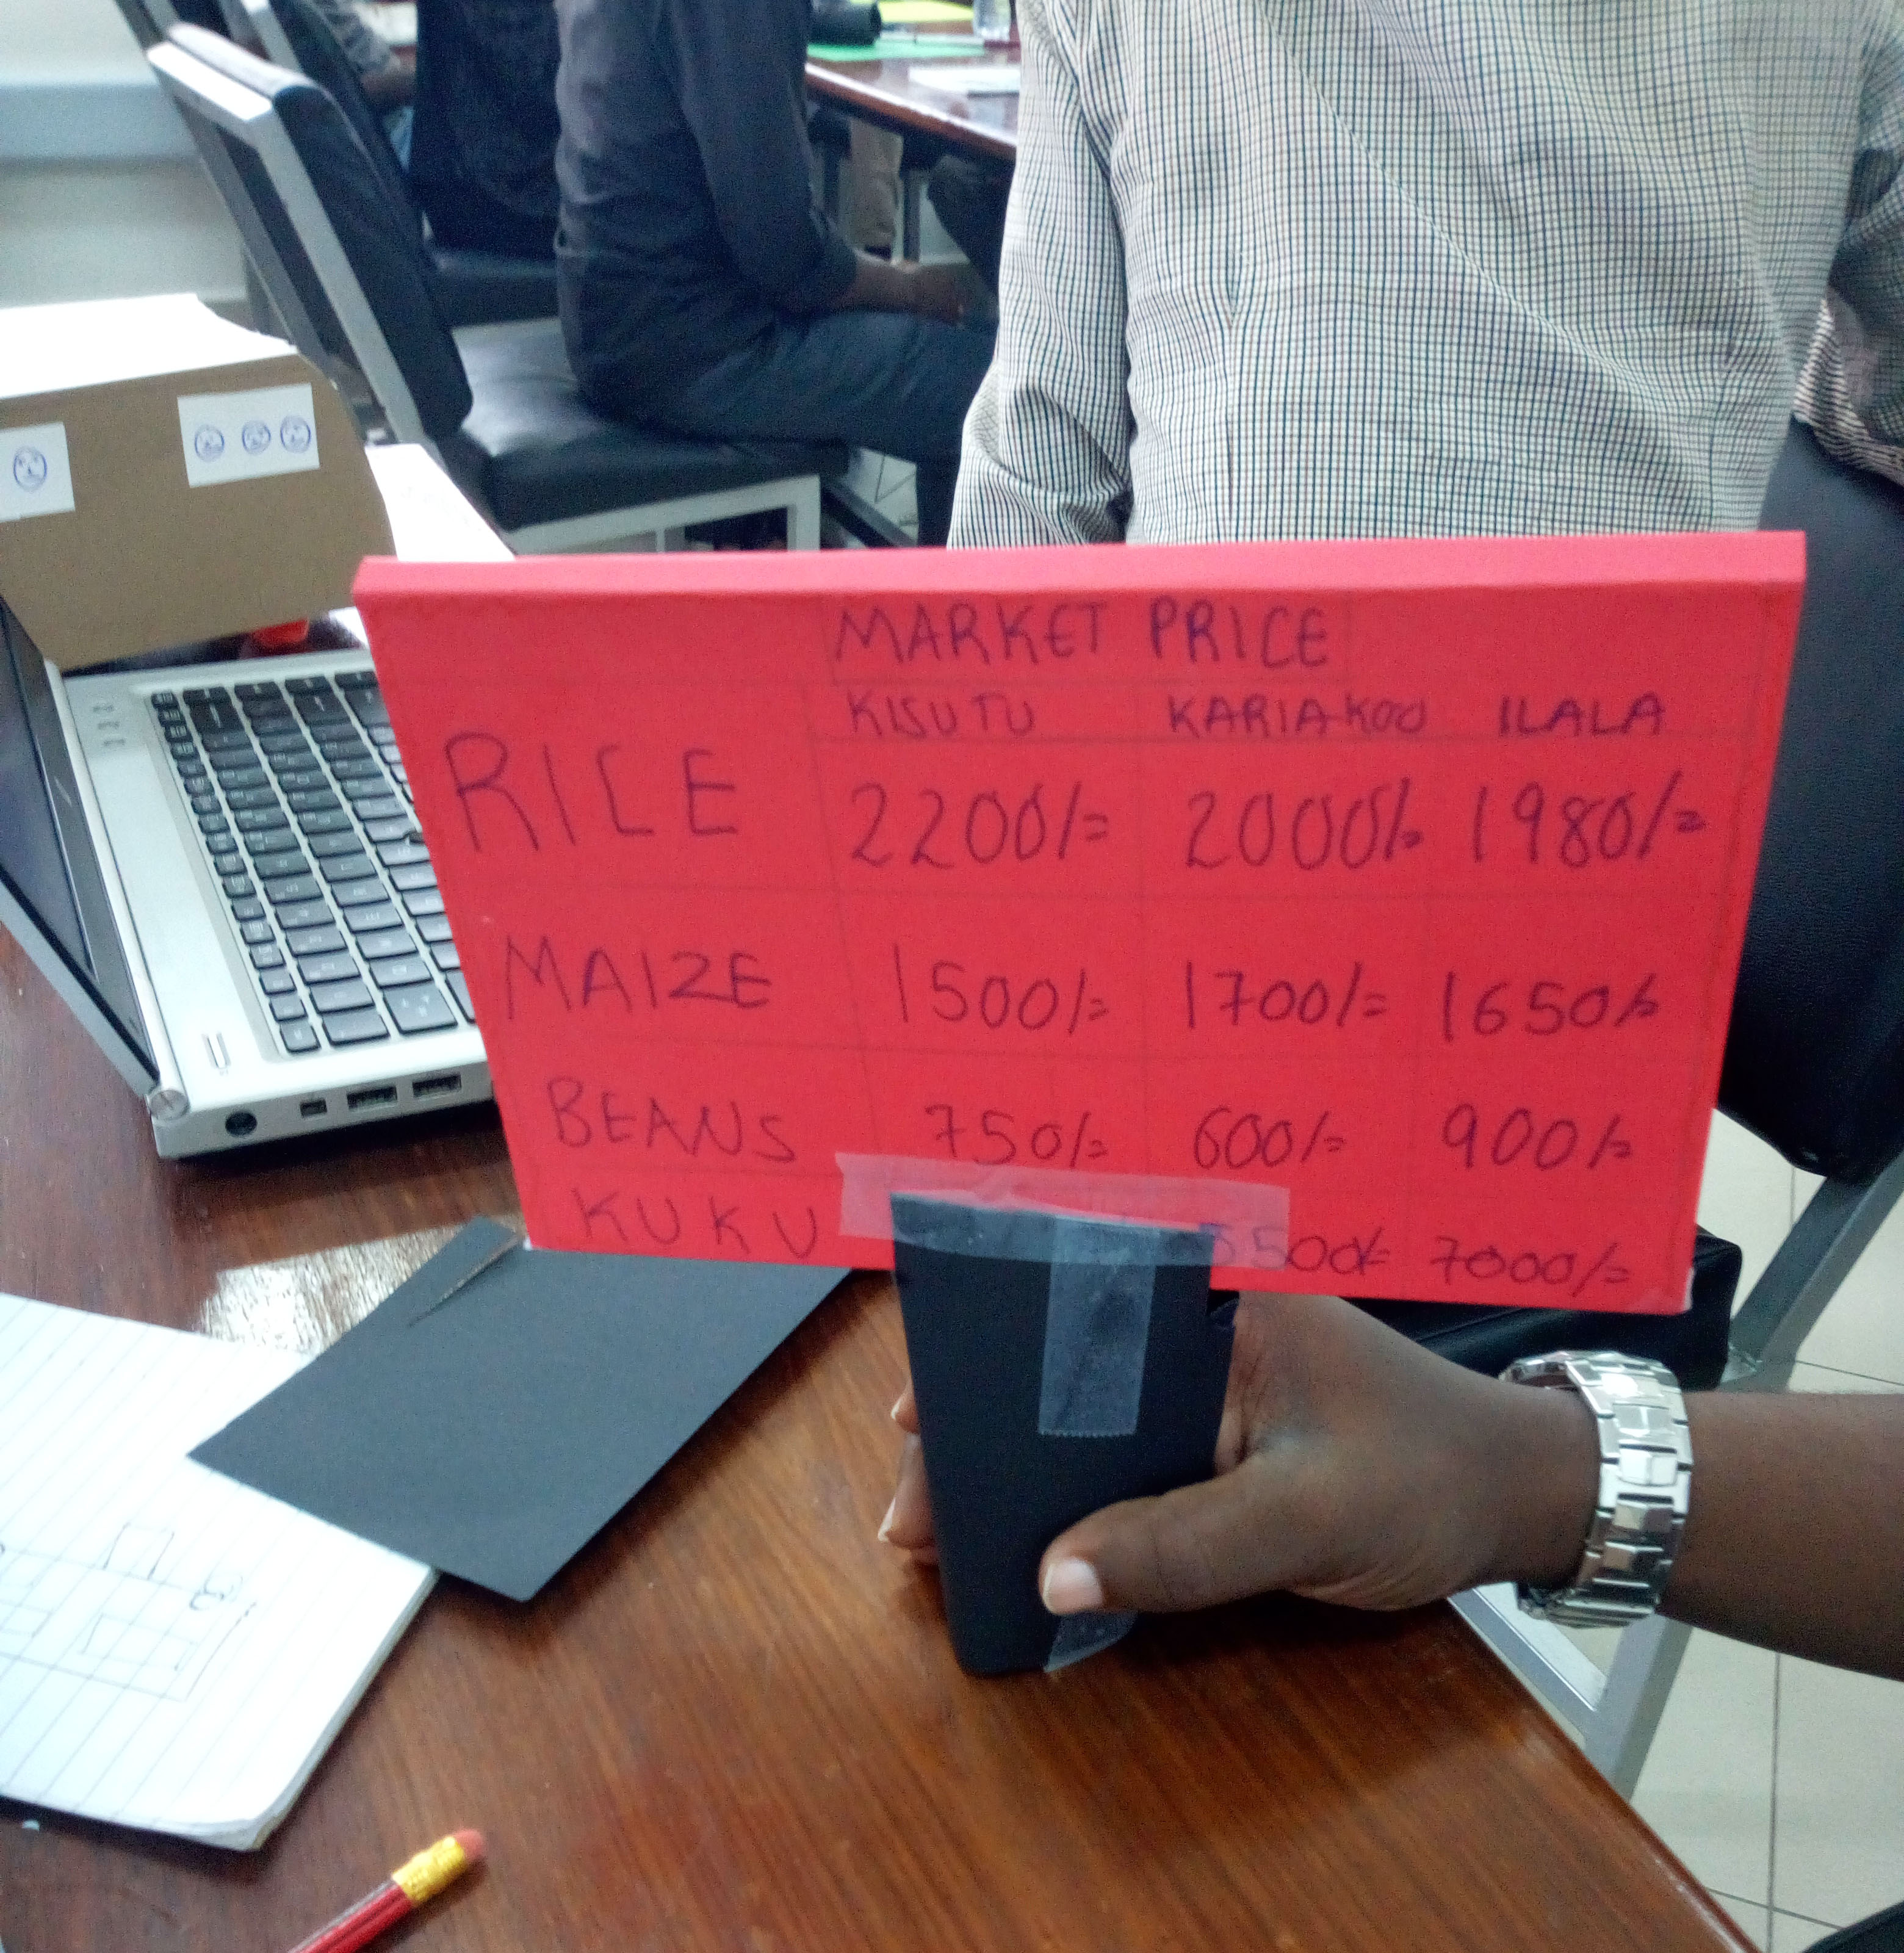 MARKET PRICE
KISUTU KARIAKOO ILALA
RICE 2200/= 2000/= 1980/=
MAIZE 1500/= 1700/= 1650/=
BEANS 750/= 600/= 900/=
KUKU 7000/=